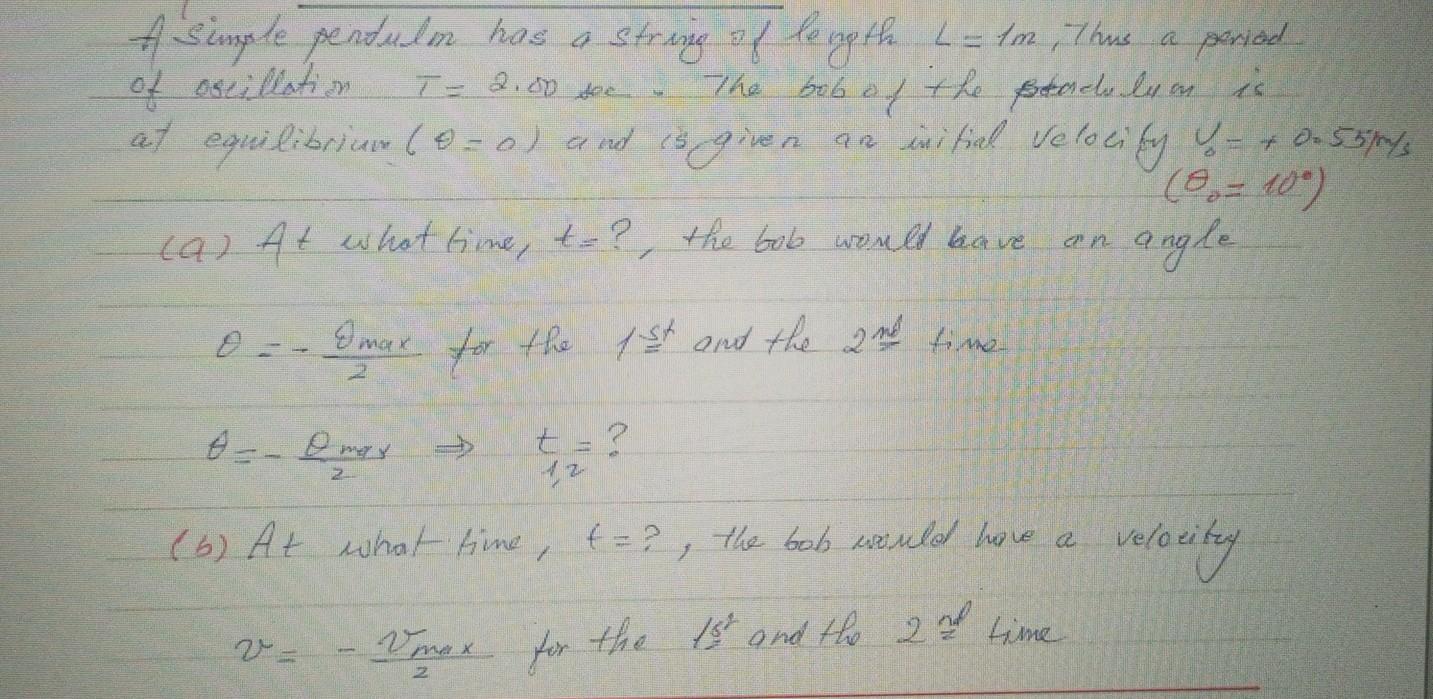 A simple pendulm has a string of length L = 1m, Thus a period
of oscillation T = 2.00 sec. The bob of the pendulum is
at equilibrium (θ = 0) and is given an initial velocity V₀ = + 0.55 m/s
(θ₀ = 10°)
(a) At what time, t = ?, the bob would have an angle
θ = - θmax/2 for the 1st and the 2nd time
θ = - θmax/2 ⇒ t₁,₂ = ?
(b) At what time, t = ?, the bob would have a velocity
v = - vmax/2 for the 1st and the 2nd time